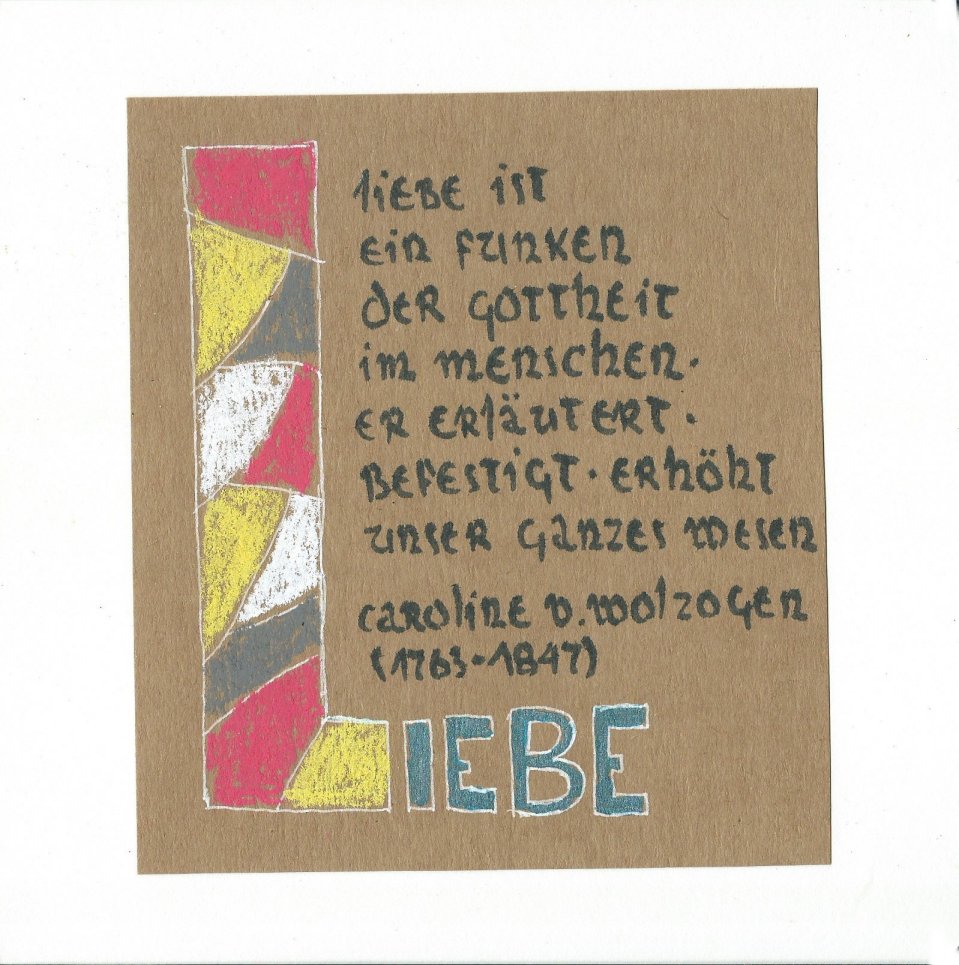 liebe ist
ein funken
der gottheit
im menschen.
er erläutert.
befestigt. erhöht
unser ganzes wesen
caroline v. wolzogen
(1763-1847)
LIEBE